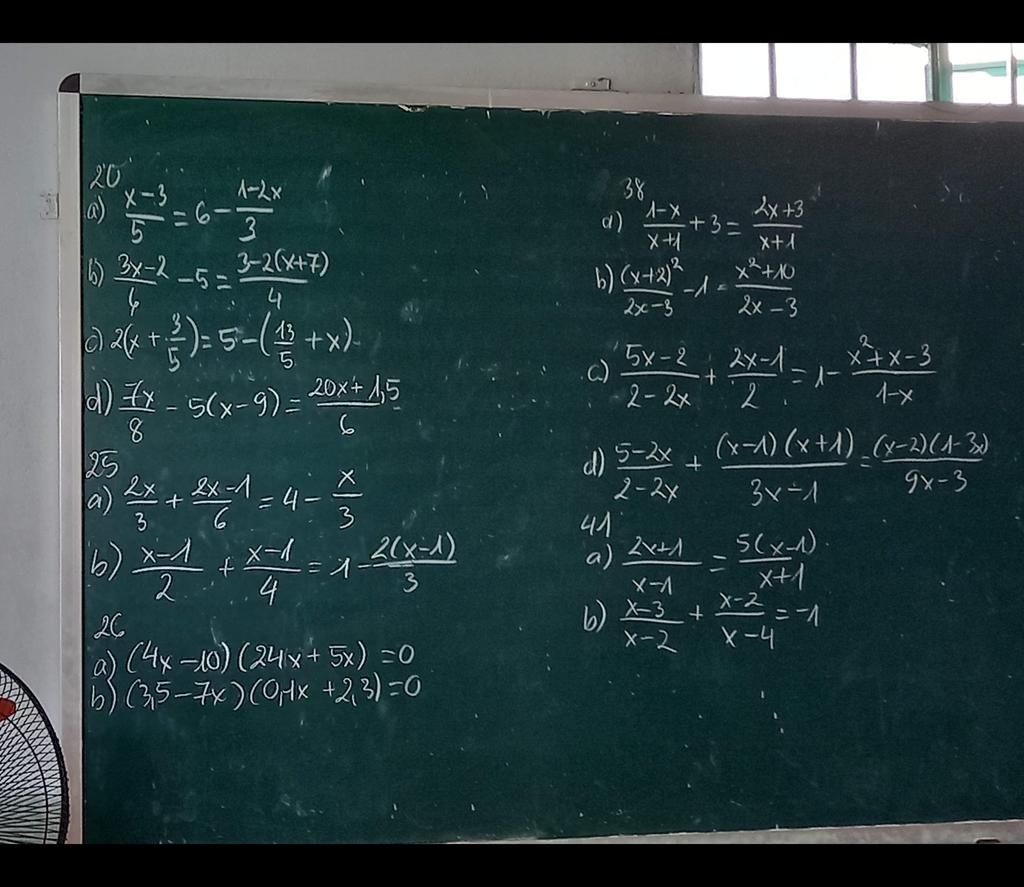 20
a) (x-3)/5 = 6 - (1-2x)/3
b) (3x-2)/6 - 5 = (3-2(x+7))/4
c) 2(x + 3/5) = 5 - (13/5 + x)
d) 7x/8 - 5(x-9) = (20x+1,5)/6
25
a) 2x/3 + (2x-1)/6 = 4 - x/3
b) (x-1)/2 + (x-1)/4 = 1 - 2(x-1)/3
26
a) (4x-10)(24x+5x) = 0
b) (3,5-7x)(0,1x+2,3) = 0
38
a) (1-x)/(x+1) + 3 = (2x+3)/(x+1)
b) (x+2)²/(2x-3) - 1 = (x²+10)/(2x-3)
c) (5x-2)/(2-2x) + (2x-1)/2 = 1 - (x²+x-3)/(1-x)
d) (5-2x)/(2-2x) + (x-1)(x+1)/(3x-1) = (x-2)(1-3x)/(9x-3)
41
a) (2x+1)/(x-1) = 5(x-1)/(x+1)
b) (x-3)/(x-2) + (x-2)/(x-4) = -1